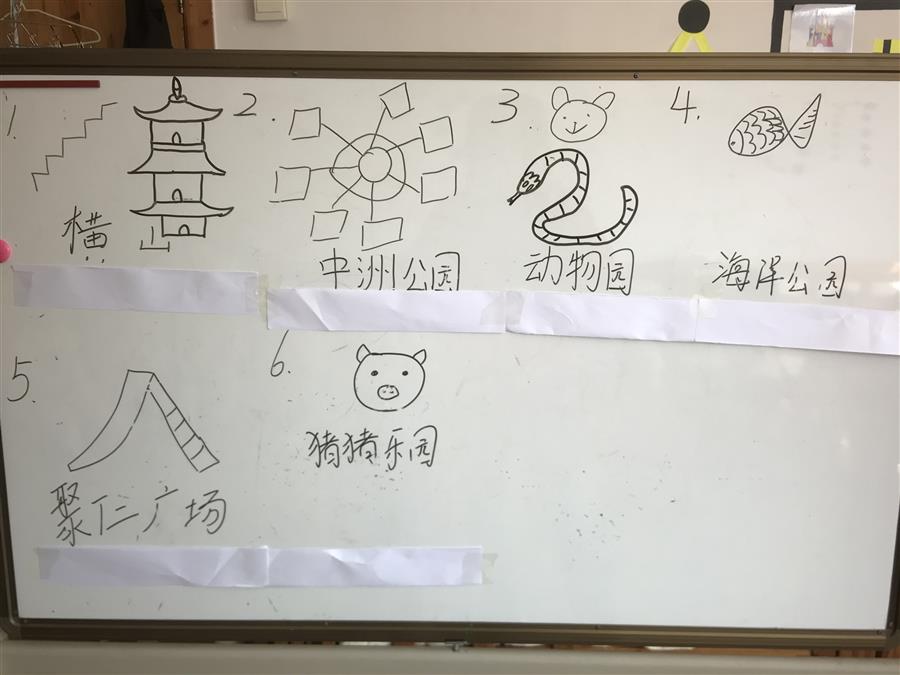 1.
横山
2.
中洲公园
3.
动物园
4.
海洋公园
5.
聚仁广场
6.
猪猪乐园